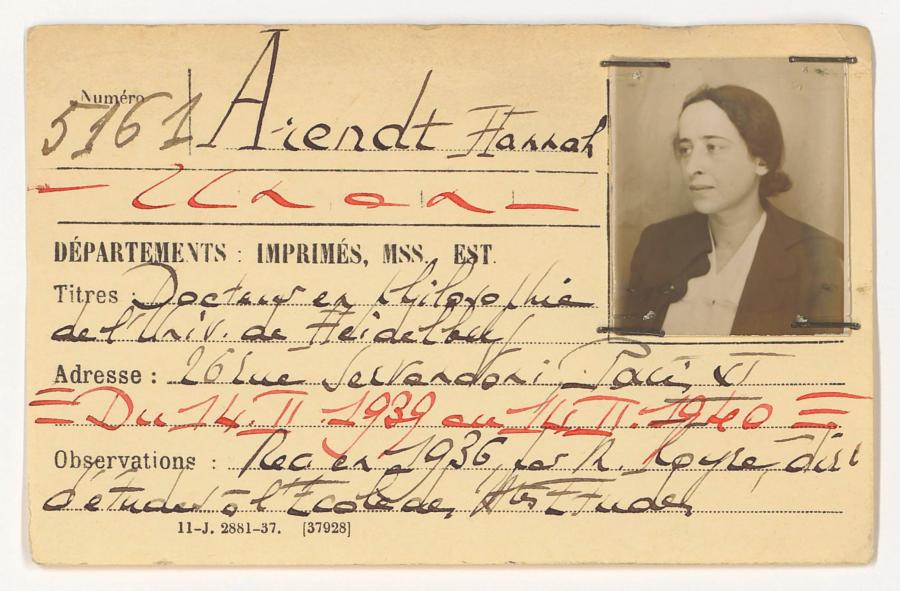 Numéro
5161 Arendt Hannah
DÉPARTEMENTS : IMPRIMÉS, MSS. EST.
Titres : Docteur en Philosophie
de l'Univ. de Heidelberg
Adresse : 26 rue Servandoni, Paris
Du 14.II.1939 au 14.II.1940
Observations : en 1936, par M. Koyré, dir
d'études à l'École des Htes Etudes
11-J. 2881-37. [37928]